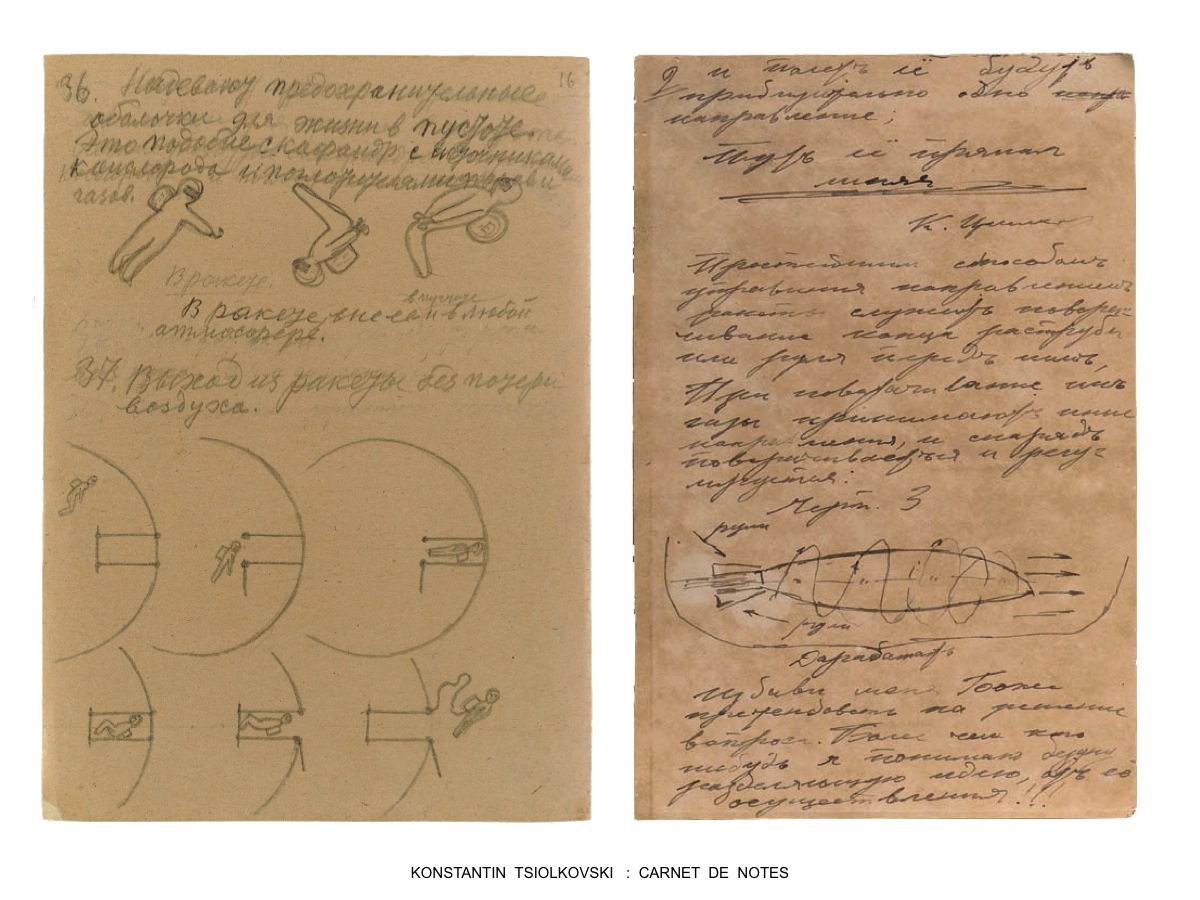 36. Надевают предохранительные
16
оболочки для жизни в пустоте.
Это подобие скафандр с источником
кислорода и поглотителями паров и
газов.
В ракете.
В ракете, вне её и в любой
в пустоте
атмосфере.
37. Выход из ракеты без потери
воздуха.
и полетъ её будутъ
приблизительно одно
направление;
Путь её прямая
линия
К. Циолк
Простейшим способомъ
управления направлениемъ
ракеты служитъ повора-
чивание конца раструба
или руля передъ нимъ.
При поворачивание ихъ
газы принимаютъ иные
направления, и снарядъ
поворачивается и регу-
лируется:
Черт. 3
рули
рули
Дорабатать
Избави меня Боже
претендовать на решение
вопроса. Более чем кто
нибудь я понимаю
идею, отъ её
осуществления!!!
KONSTANTIN TSIOLKOVSKI : CARNET DE NOTES